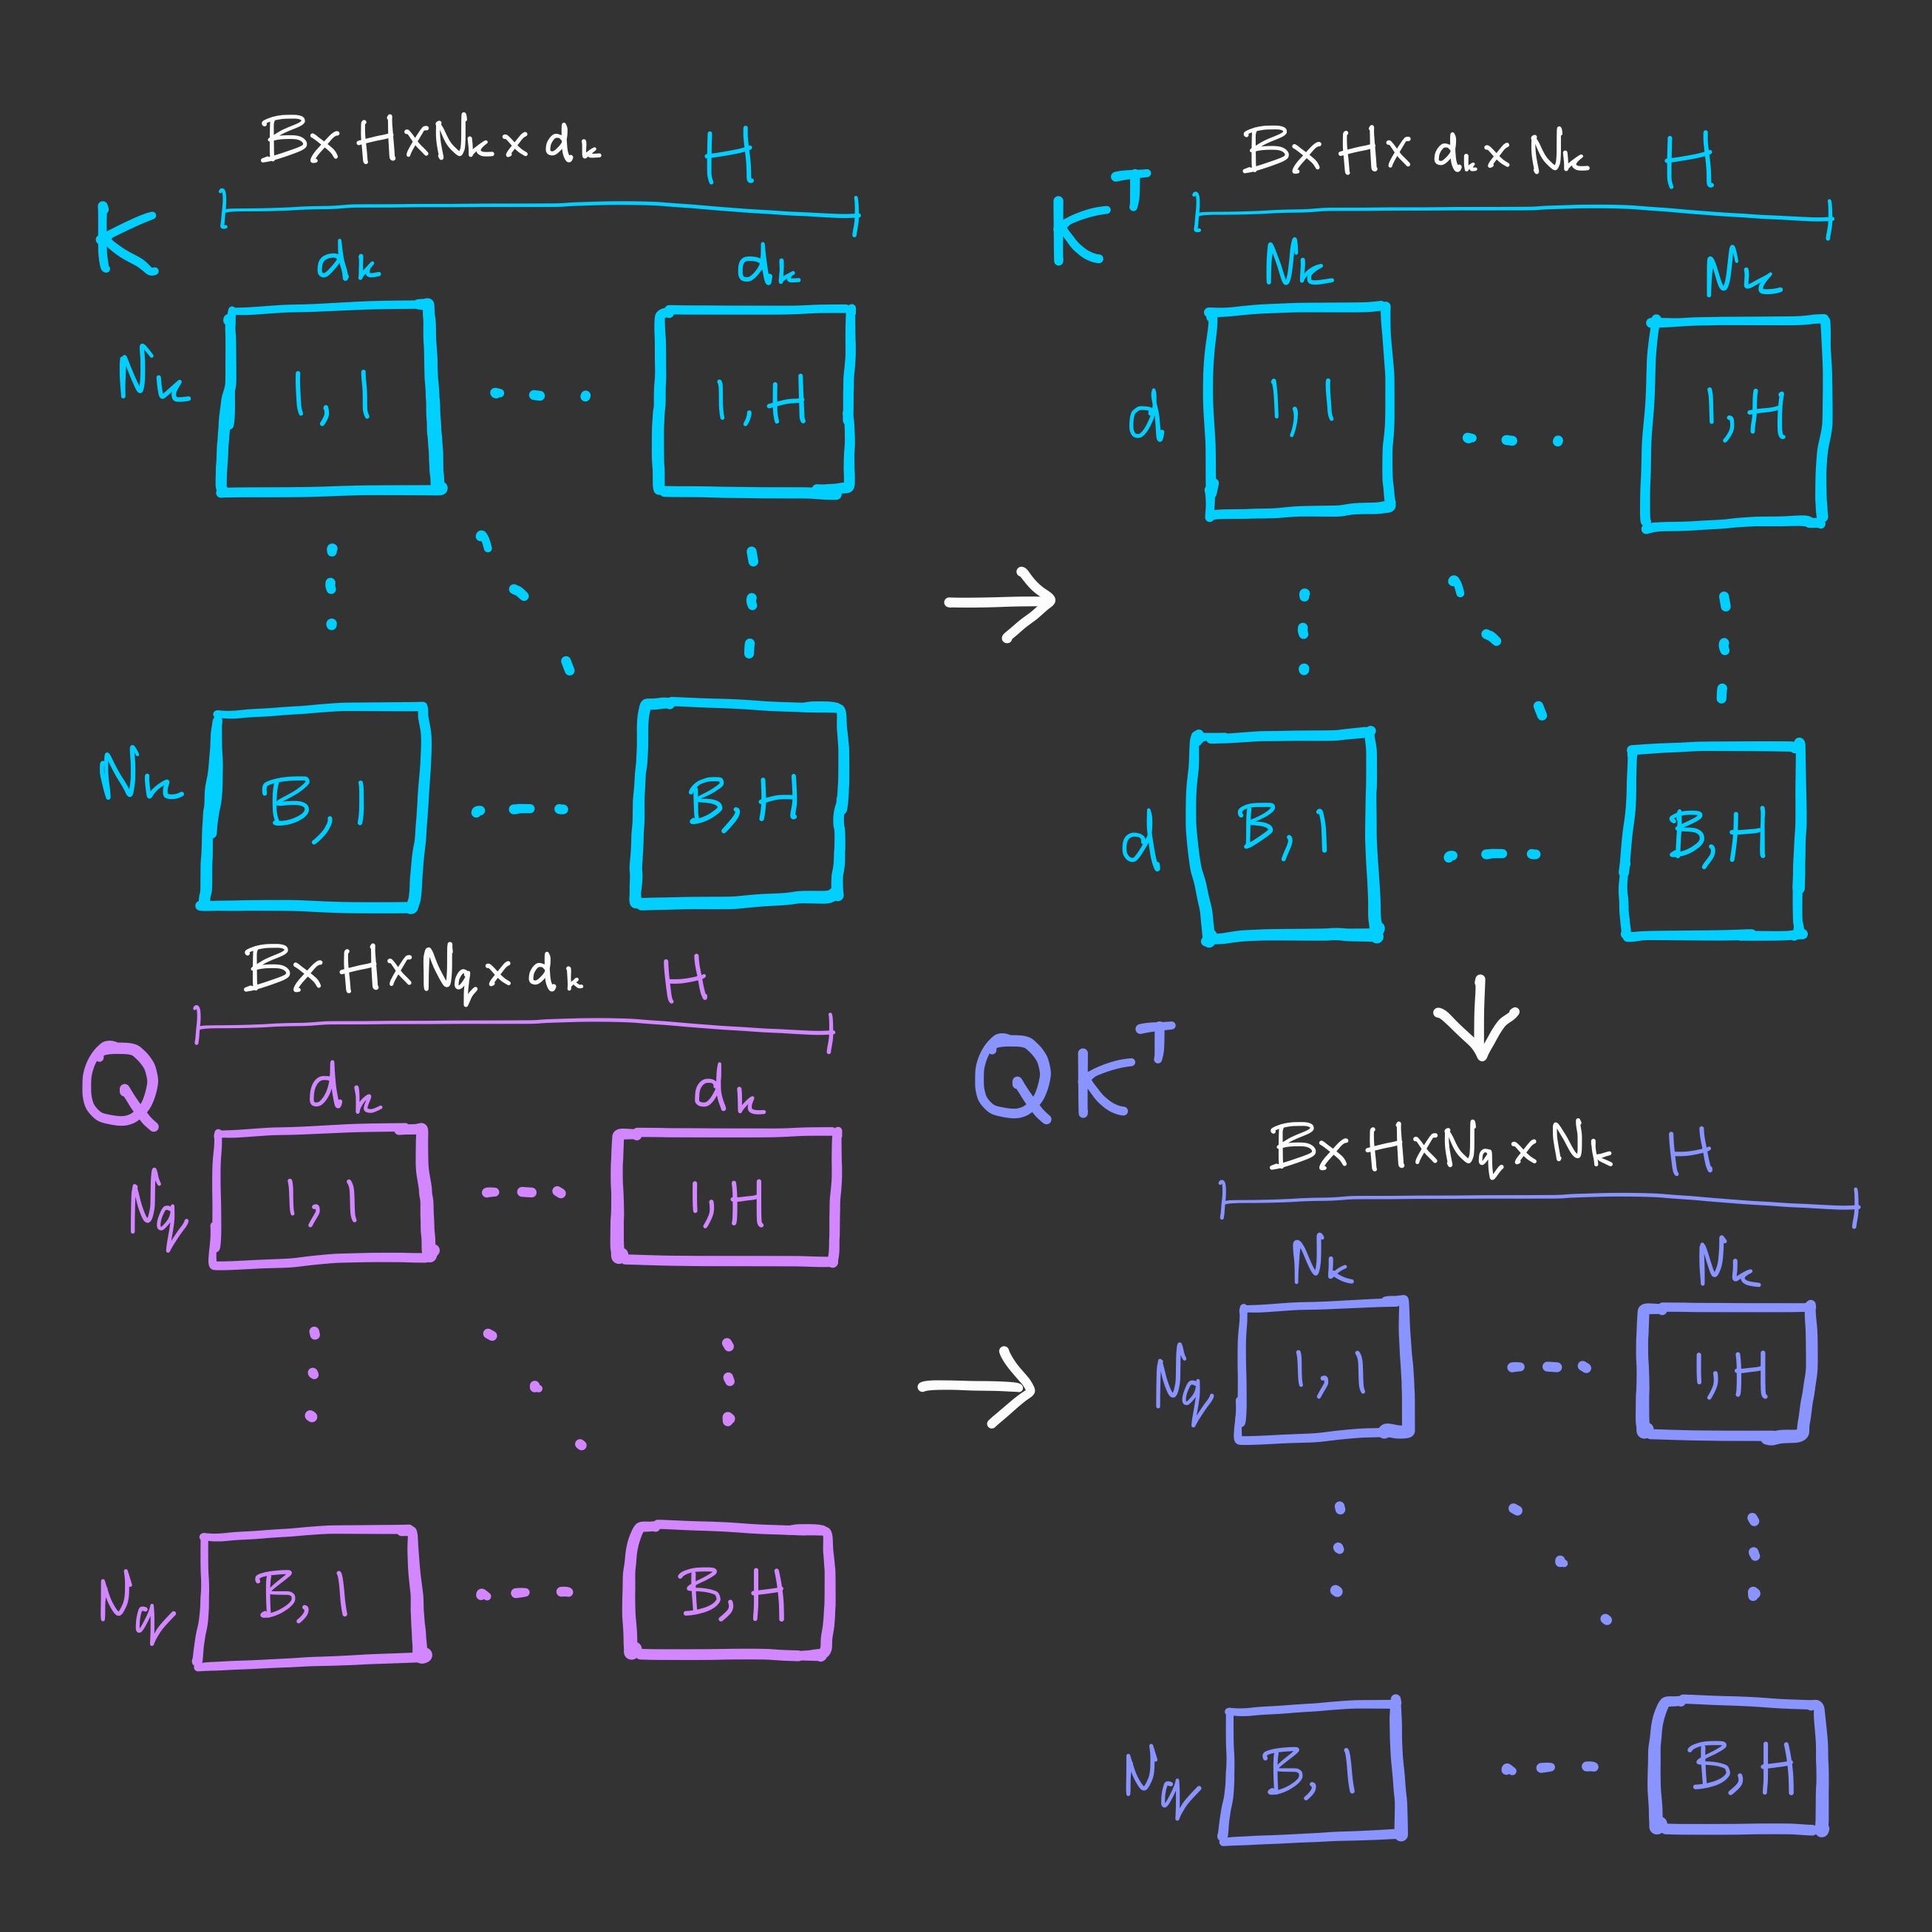 K
B x H x Nk x dk
H
dk
dk
Nk
1,1
1,H
Nk
B,1
B,H
K^T
B x H x dk x Nk
H
Nk
Nk
dk
1,1
1,H
dk
B,1
B,H
Q
B x H x Nq x dk
H
dk
dk
Nq
1,1
1,H
Nq
B,1
B,H
QK^T
B x H x Nq x Nk
H
Nk
Nk
Nq
1,1
1,H
Nq
B,1
B,H